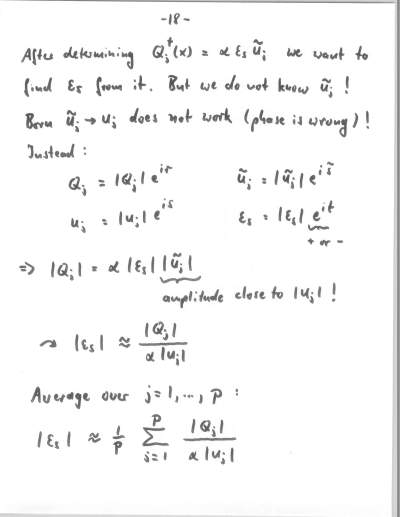 -18-
After determining Q_j^+(x) = α ε_s ũ_j we want to
find ε_s from it. But we do not know ũ_j !
Born ũ_j → u_j does not work (phase is wrong)!
Instead:
Q_j = |Q_j| e^{ir}   ũ_j = |ũ_j| e^{i s̃}
u_j = |u_j| e^{is}   ε_s = |ε_s| e^{it}
+ or -
⇒ |Q_j| = α |ε_s| |ũ_j|
amplitude close to |u_j| !
⤳ |ε_s| ≈ |Q_j| / α|u_j|
Average over j=1, ..., P :
|ε_s| ≈ 1/P ∑_{j=1}^{P} |Q_j| / α|u_j|